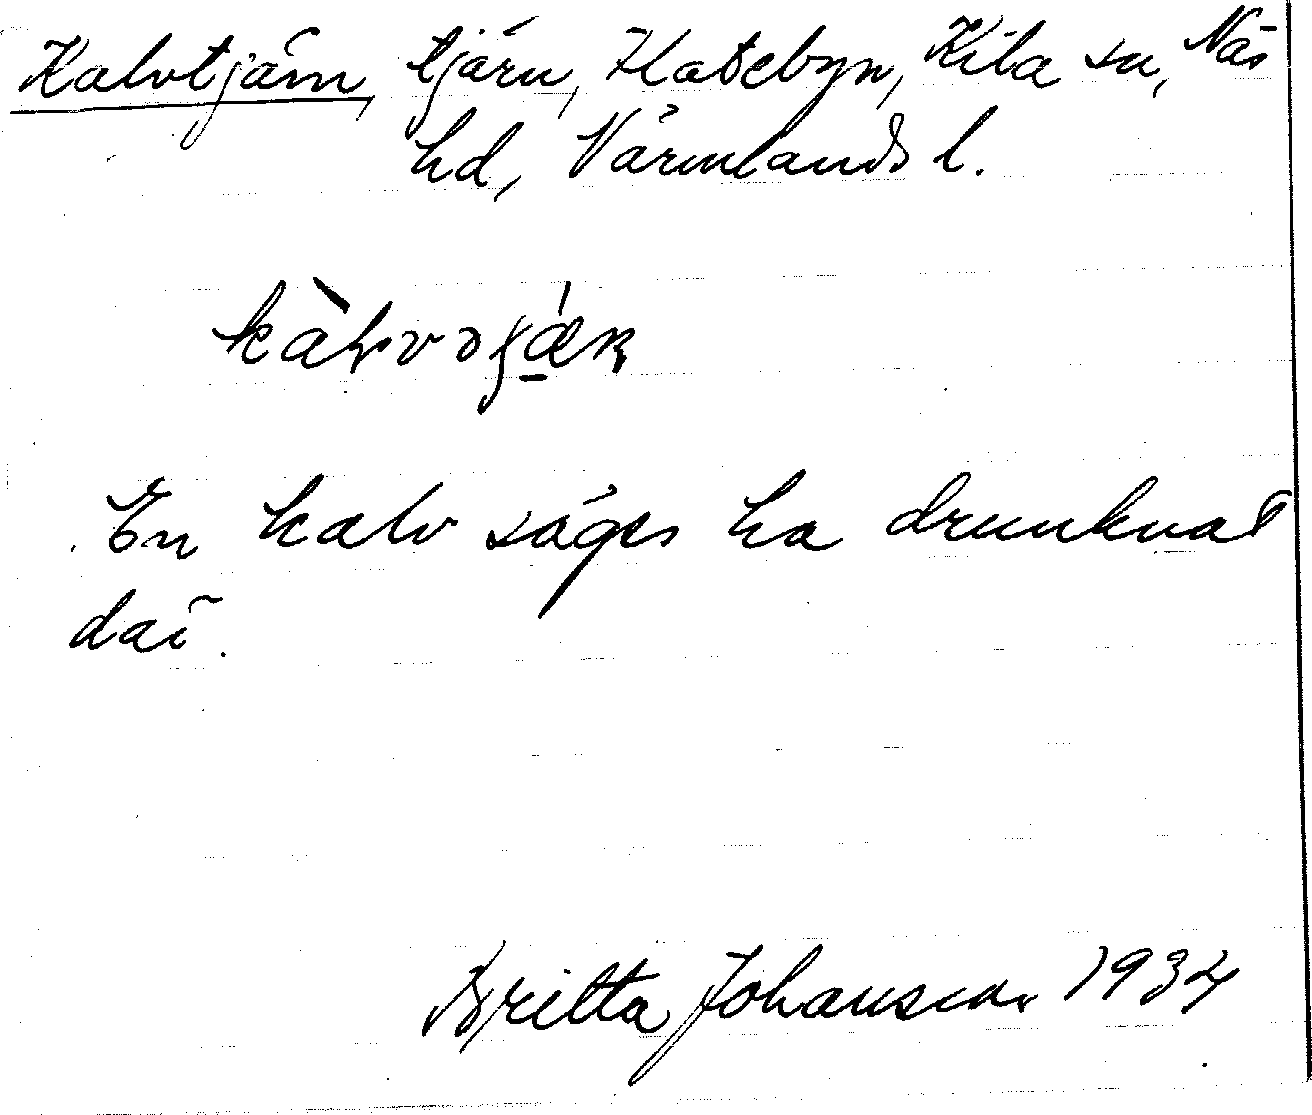 Kalvtjärn, tjärn, Hatebyn, Kila sn, Näs
hd, Värmlands l.
En kalv säges ha drunknat
där.
Britta Johansson 1934